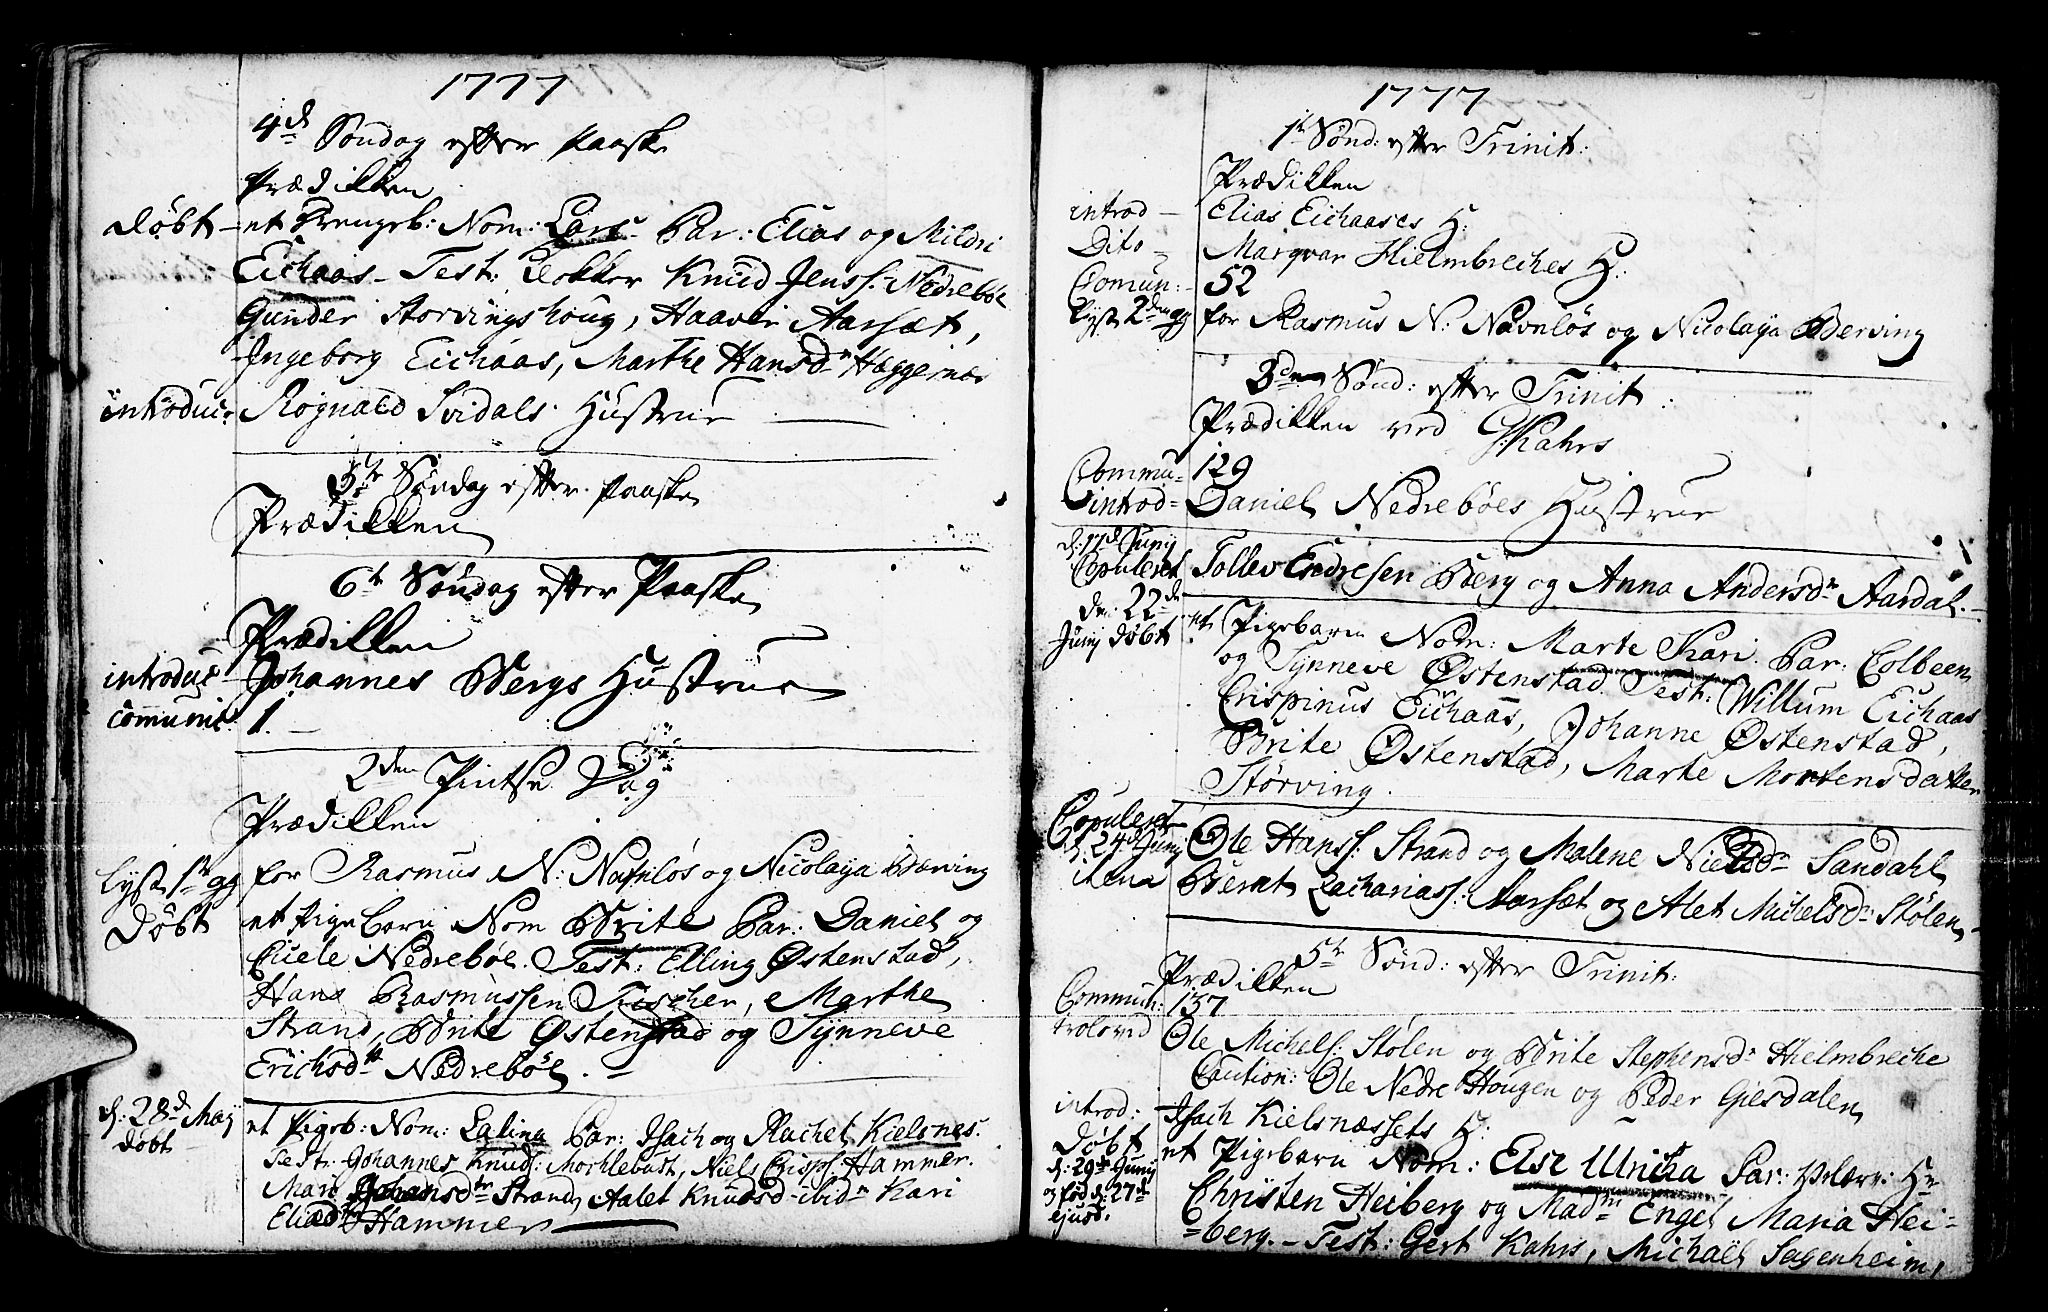 1777
4d Søndag efter paaske
prædikken
døbt et Drengeb: Nom: Lars Par: Elias og Mildri
Eichaas - Test: Klokker Knud Jenss: Nedrebøe
Gunder Storvingshoug, Haaver Aarsæt,
Ingeborg Eichaas, Marthe Hansdr Hæggernæs
introduc: Rognald Svidals Hustrue
5te Søndag efter paaske
Prædikken
6te Søndag efter Paaske
Prædikken
introduc Johannes Bergs Hustrue
communic: 1.
2den Pintse Dag
Prædikken
lyst 1te gg for Rasmus N: Navnløs og Nicolaya Bærving
Døbt et Pigebarn Nom Brite Par: Daniel og
Nedrebøe. Test: Elling Østenstad,
Hans Rasmussen Fischer, Marthe
Strand, Brite Østenstad og Synneve
Erichsdtr Nedrebøe. -
d: 28d May døbt et Pigeb: Nom: Lalina Par: Isach og Rachel Kielsnes.
Test: Johannes Knuds: Mochlebust, Niels Crisps: Hammer.
Mari Johansdtr Strand, Aalet Knudsd ibidm Kari
Eliædtr Hammer
1777
1te Sønd: efter Trinit:
Prædikken
introd - Elias Eichaases H:
Dito - Marqvar Hielmbreches H:
Comun: - 52
lyst 2den gg for Rasmus N: Navnløs og Nicolaya Bderving
3den Sønd: efter Trinit:
Prædikken ved G: Kahrs
Commu: 129
introd= Daniel Nedrebøes Hustrue
d: 17d Junij Copuleret Tollev Endresen Berg og Anna Andersdr Aardal. -
den 22de Junij døbt et Pigebarn Nom: Marte Kari Par: Colbeen
og Synneve Østenstad Test: Willum Eichaas
Crispinus Eichaas, Johanne Østenstad,
Brite Østenstad, Marte Mortensdatter
Størving.
Copuleret d: 24d Junij Ole Hanss: Strand og Malene Nielsdr Sandahl
item Bernt Zachariass: Aarsæt og Alet Michelsdr: Stølen -
5te Sønd: efter Trinit:
Prædikken
Commun: 137
troloved Ole Michels: Stølen og Brite Stephensdr Hielmbreche
Caution: Ole Nedre Hougen og Peder Giesdalen
introd: Isach Kielsnæssets H:
Døbt d: 29de Junij og fød d: 27d ejusd. et Pigebarn Nom: Else Ulrica Par: Velærv: Hr
Christen Heiberg og Madme Engel Maria Hei=
=berg. - Test: Gert Kahrs, Michaël Sagenheim,